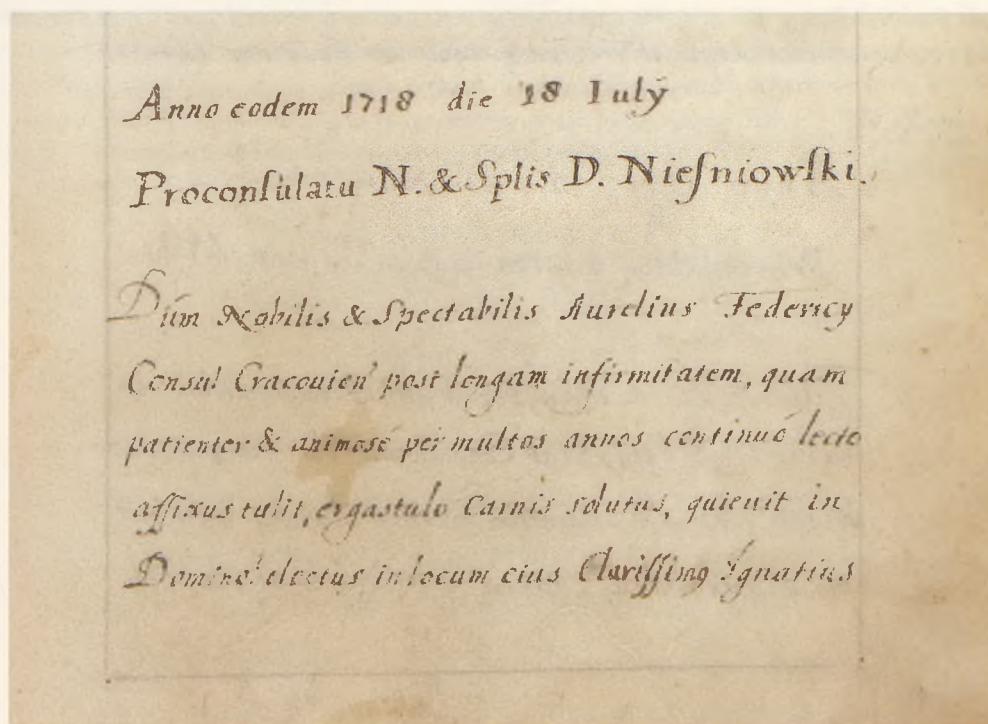 Anno eodem 1718 die 18 Iulÿ
Proconſulatu N. & Splis D. Nieſniowſki.
Dum Nobilis & Spectabilis Aurelius Federicy
Consul Cracouien' post longam infirmitatem, quam
patienter & animosè per multos annos continuò lecto
affixus tulit, ergastulo Carnis solutus, quieuit in
Domino! electus in locum eius Clariſſimꝰ Ignatius